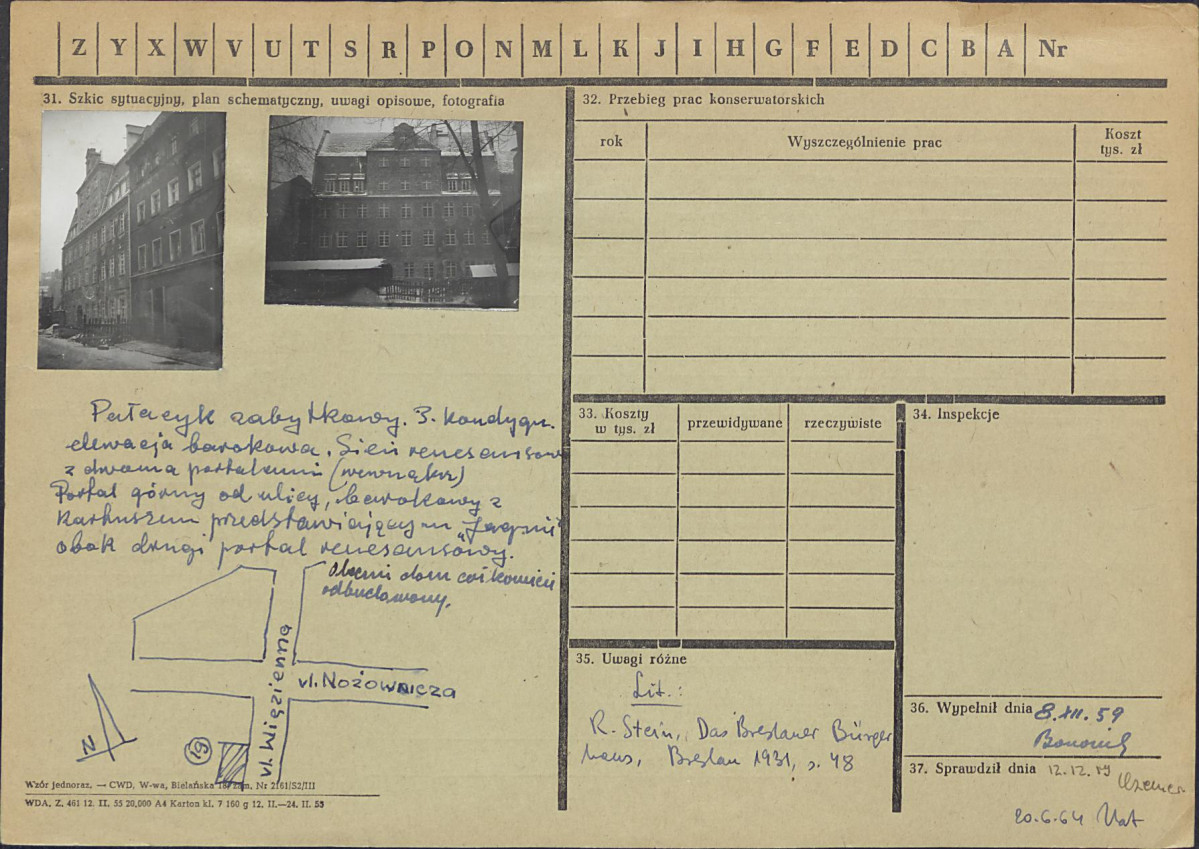 Z Y X W V U T S R P O N M L K J I H G F E D C B A Nr
31. Szkic sytuacyjny, plan schematyczny, uwagi opisowe, fotografia
Pałacyk zabytkowy. 3. kondygn.
elewacja barokowa. Sień renesansow
z dwoma portalami (wewnątrz)
Portal górny od ulicy, barokowy z
kartuszem przedstawiającym „Jagni"
obok drugi portal renesansowy.
Obecni dom całkowici
odbudowany.
ul. Więzienna
ul. Nożownicza
N
19
Wzór jednoraz. — CWD, W-wa, Bielańska 18, zam. Nr 2161/S2/III
WDA, Z. 461 12. II. 55 20,000 A4 Karton kl. 7 160 g 12. II.—24. II. 55
32. Przebieg prac konserwatorskich
rok Wyszczególnienie prac Koszt
tys. zł
33. Koszty
w tys. zł przewidywane rzeczywiste
34. Inspekcje
35. Uwagi różne
Lit.:
R. Stein, Das Breslauer Bürger
haus, Breslau 1931, s. 48
36. Wypełnił dnia 8.XII.59
37. Sprawdził dnia 12.12.59
20.6.64